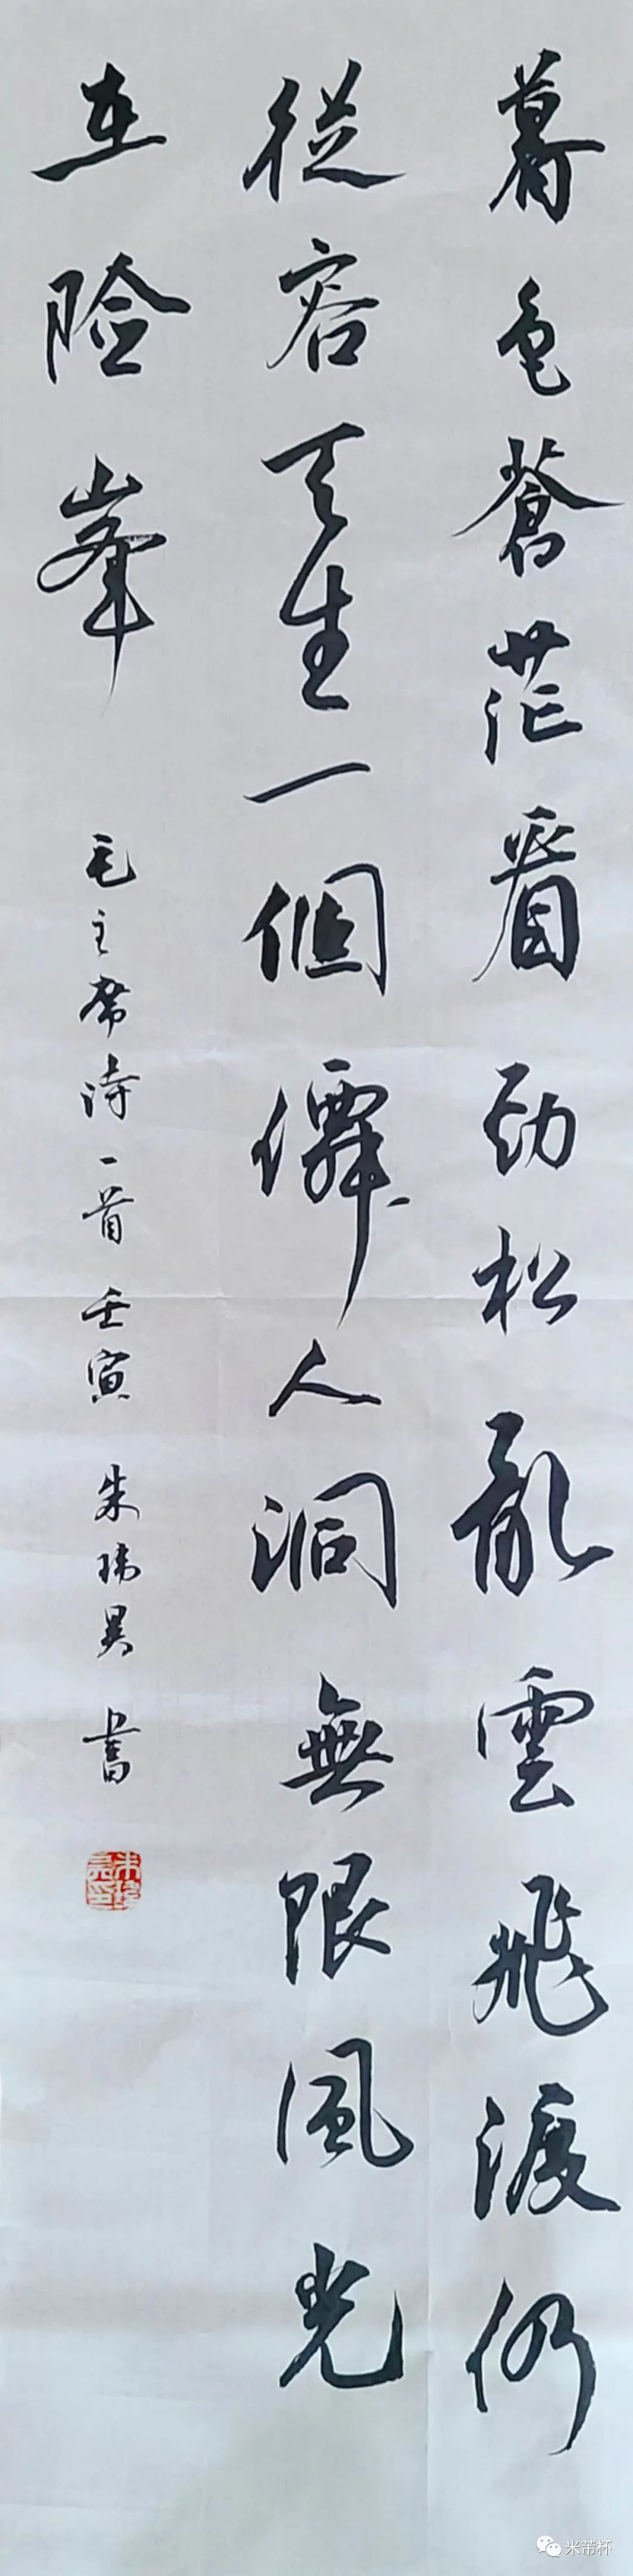 暮色蒼茫看劲松亂雲飛渡仍
從容天生一個僊人洞無限風光
在险峯
毛主席诗一首 壬寅 朱玮昊 書
米芾杯